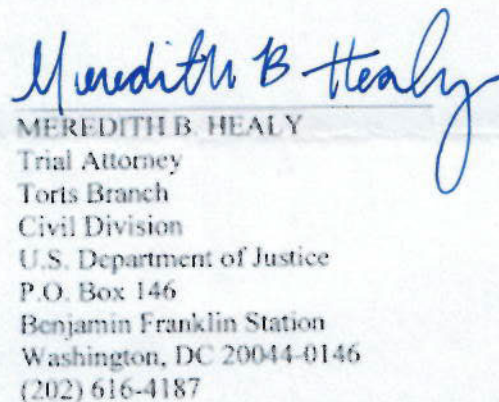 Meredith B Healy
MEREDITH B. HEALY
Trial Attorney
Torts Branch
Civil Division
U.S. Department of Justice
P.O. Box 146
Benjamin Franklin Station
Washington, DC 20044-0146
(202) 616-4187